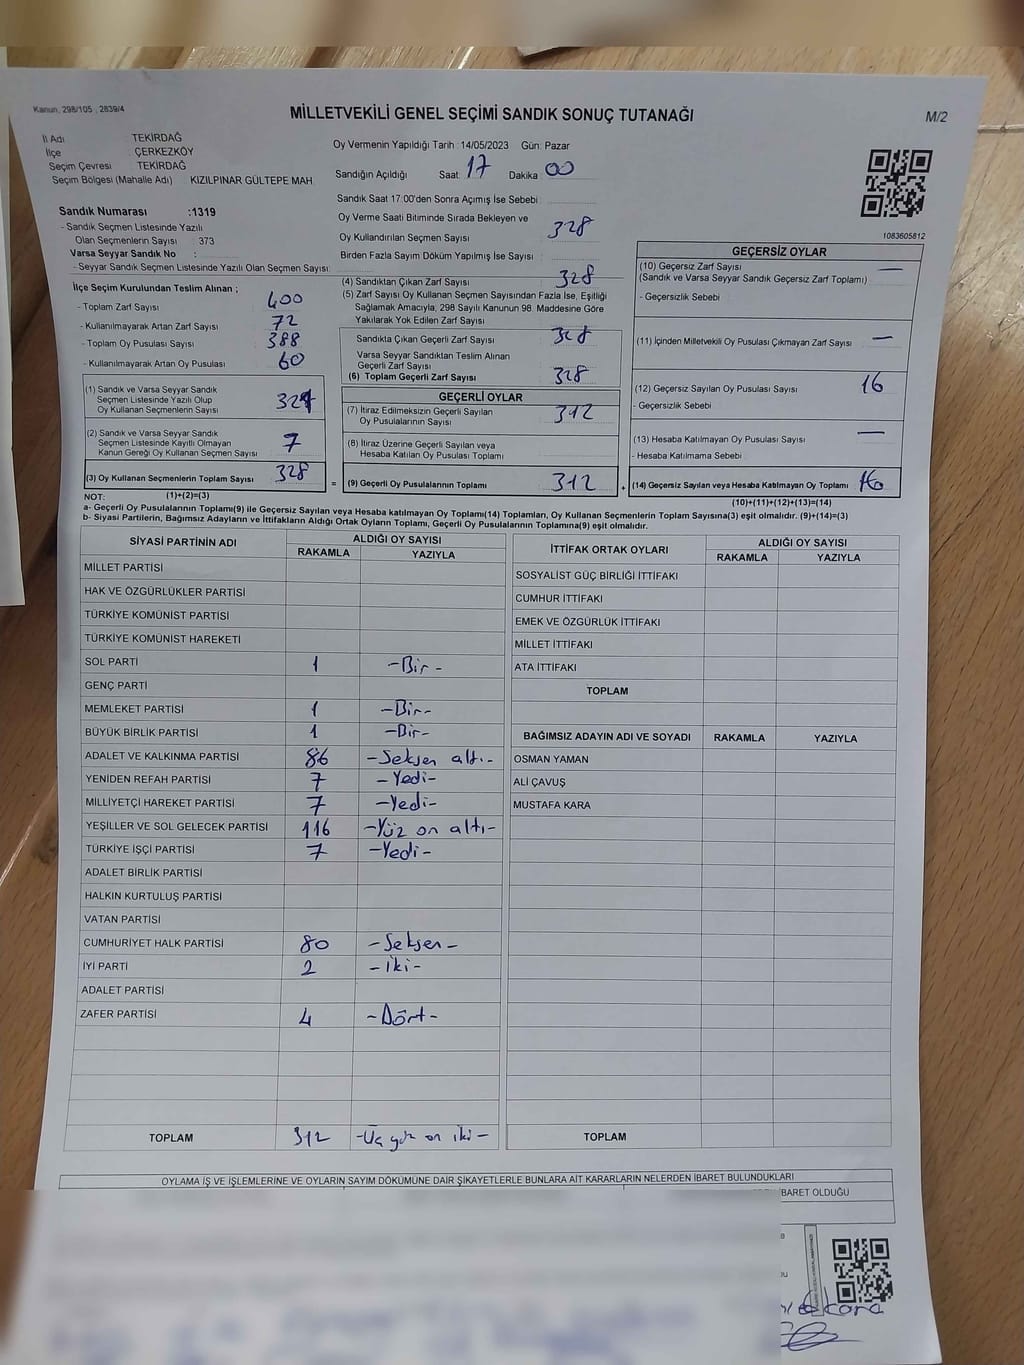 Kanun, 298/105 , 2839/4
MİLLETVEKİLİ GENEL SEÇİMİ SANDIK SONUÇ TUTANAĞI
M/2
İl Adı TEKİRDAĞ
İlçe : ÇERKEZKÖY
Seçim Çevresi TEKİRDAĞ
Seçim Bölgesi (Mahalle Adı) KIZILPINAR GÜLTEPE MAH
Oy Vermenin Yapıldığı Tarih : 14/05/2023 Gün: Pazar
Sandığın Açıldığı Saat: 17 Dakika : 00
Sandık Saat 17:00'den Sonra Açımış İse Sebebi :
Oy Verme Saati Bitiminde Sırada Bekleyen ve
Oy Kullandırılan Seçmen Sayısı : 328
Birden Fazla Sayım Döküm Yapılmış İse Sayısı :
1083605812
Sandık Numarası :1319
- Sandık Seçmen Listesinde Yazılı
Olan Seçmenlerin Sayısı : 373
Varsa Seyyar Sandık No :
- Seyyar Sandık Seçmen Listesinde Yazılı Olan Seçmen Sayısı:
İlçe Seçim Kurulundan Teslim Alınan ;
- Toplam Zarf Sayısı : 400
- Kullanılmayarak Artan Zarf Sayısı : 72
- Toplam Oy Pusulası Sayısı : 388
- Kullanılmayarak Artan Oy Pusulası : 60
(1) Sandık ve Varsa Seyyar Sandık
Seçmen Listesinde Yazılı Olup
Oy Kullanan Seçmenlerin Sayısı
(2) Sandık ve Varsa Seyyar Sandık
Seçmen Listesinde Kayıtlı Olmayan
Kanun Gereği Oy Kullanan Seçmen Sayısı : 7
(3) Oy Kullanan Seçmenlerin Toplam Sayısı : 328
(4) Sandıktan Çıkan Zarf Sayısı : 328
(5) Zarf Sayısı Oy Kullanan Seçmen Sayısından Fazla İse, Eşitliği
Sağlamak Amacıyla, 298 Sayılı Kanunun 98. Maddesine Göre
Yakılarak Yok Edilen Zarf Sayısı
Sandıkta Çıkan Geçerli Zarf Sayısı : 328
Varsa Seyyar Sandıktan Teslim Alınan
Geçerli Zarf Sayısı
(6) Toplam Geçerli Zarf Sayısı : 328
GEÇERLİ OYLAR
(7) İtiraz Edilmeksizin Geçerli Sayılan
Oy Pusulalarının Sayısı : 312
(8) İtiraz Üzerine Geçerli Sayılan veya
Hesaba Katılan Oy Pusulası Toplamı
= (9) Geçerli Oy Pusulalarının Toplamı : 312 +
GEÇERSİZ OYLAR
(10) Geçersiz Zarf Sayısı : —
(Sandık ve Varsa Seyyar Sandık Geçersiz Zarf Toplamı)
- Geçersizlik Sebebi
(11) İçinden Milletvekili Oy Pusulası Çıkmayan Zarf Sayısı : —
(12) Geçersiz Sayılan Oy Pusulası Sayısı : 16
- Geçersizlik Sebebi
(13) Hesaba Katılmayan Oy Pusulası Sayısı : —
- Hesaba Katılmama Sebebi
(14) Geçersiz Sayılan veya Hesaba Katılmayan Oy Toplamı : 16
NOT: (1)+(2)=(3) (10)+(11)+(12)+(13)=(14)
a- Geçerli Oy Pusulalarının Toplamı(9) ile Geçersiz Sayılan veya Hesaba katılmayan Oy Toplamı(14) Toplamları, Oy Kullanan Seçmenlerin Toplam Sayısına(3) eşit olmalıdır. (9)+(14)=(3)
b- Siyasi Partilerin, Bağımsız Adayların ve İttifakların Aldığı Ortak Oyların Toplamı, Geçerli Oy Pusulalarının Toplamına(9) eşit olmalıdır.
SİYASİ PARTİNİN ADI ALDIĞI OY SAYISI
RAKAMLA YAZIYLA
MİLLET PARTİSİ
HAK VE ÖZGÜRLÜKLER PARTİSİ
TÜRKİYE KOMÜNİST PARTİSİ
TÜRKİYE KOMÜNİST HAREKETİ
SOL PARTİ 1 -Bir-
GENÇ PARTİ
MEMLEKET PARTİSİ 1 -Bir-
BÜYÜK BİRLİK PARTİSİ 1 -Bir-
ADALET VE KALKINMA PARTİSİ 86 -Seksen altı-
YENİDEN REFAH PARTİSİ 7 -Yedi-
MİLLİYETÇİ HAREKET PARTİSİ 7 -Yedi-
YEŞİLLER VE SOL GELECEK PARTİSİ 116 -Yüz on altı-
TÜRKİYE İŞÇİ PARTİSİ 7 -Yedi-
ADALET BİRLİK PARTİSİ
HALKIN KURTULUŞ PARTİSİ
VATAN PARTİSİ
CUMHURİYET HALK PARTİSİ 80 -Seksen-
İYİ PARTİ 2 -İki-
ADALET PARTİSİ
ZAFER PARTİSİ 4 -Dört-
TOPLAM 312 -Üç yüz on iki-
İTTİFAK ORTAK OYLARI ALDIĞI OY SAYISI
RAKAMLA YAZIYLA
SOSYALİST GÜÇ BİRLİĞİ İTTİFAKI
CUMHUR İTTİFAKI
EMEK VE ÖZGÜRLÜK İTTİFAKI
MİLLET İTTİFAKI
ATA İTTİFAKI
TOPLAM
BAĞIMSIZ ADAYIN ADI VE SOYADI RAKAMLA YAZIYLA
OSMAN YAMAN
ALİ ÇAVUŞ
MUSTAFA KARA
TOPLAM
OYLAMA İŞ VE İŞLEMLERİNE VE OYLARIN SAYIM DÖKÜMÜNE DAİR ŞİKAYETLERLE BUNLARA AİT KARARLARIN NELERDEN İBARET BULUNDUKLARI
İBARET OLDUĞU